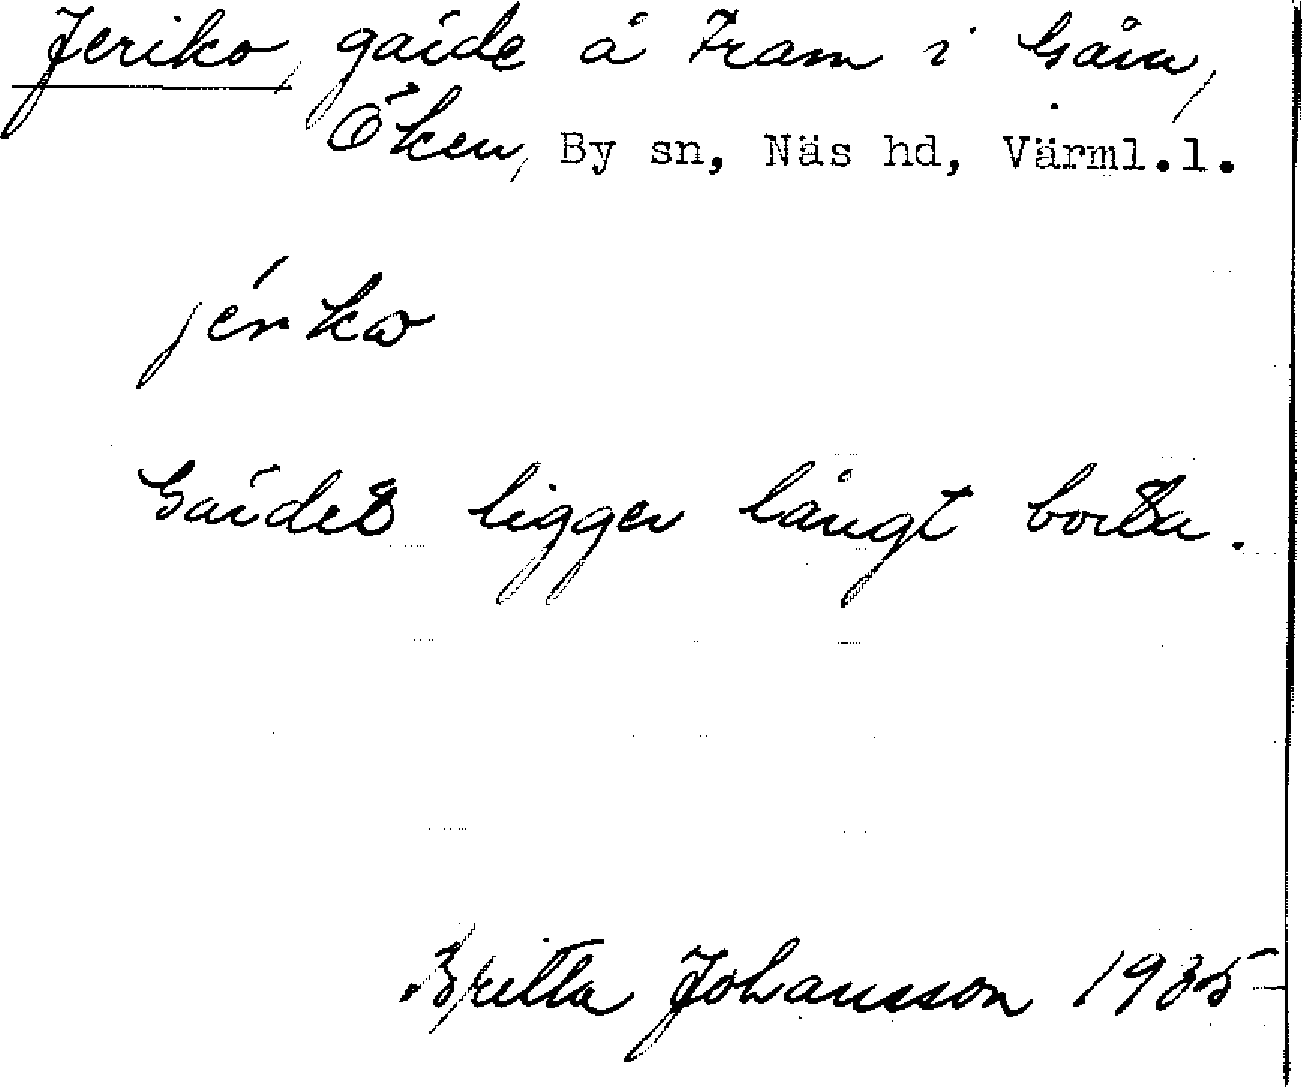 Jeriko, gärde å Fram i Gårn,
Öken, By sn, Näs hd, Värml.l.
jérko
Gärdet ligger långt borta.
Britta Johansson 1935